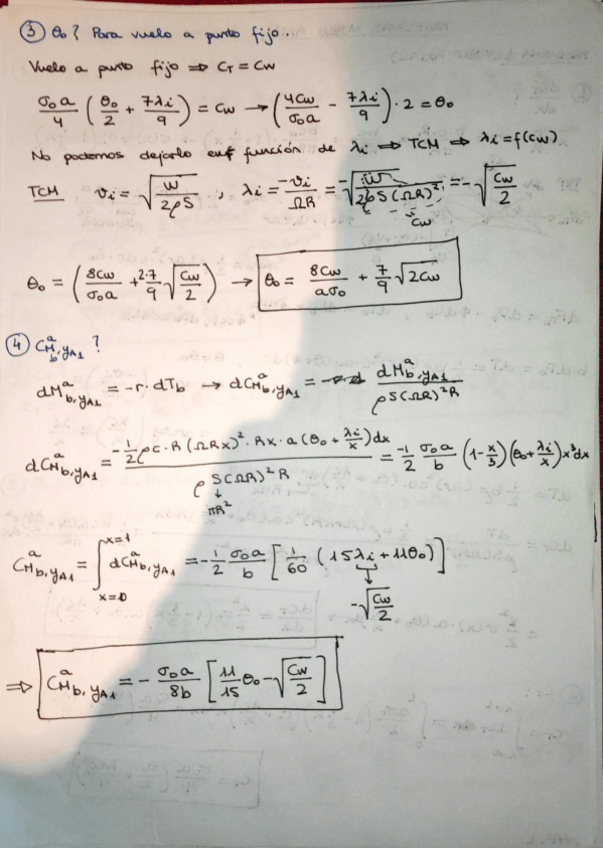 ③ θ₀? Para vuelo a punto fijo.
Vuelo a punto fijo ⇒ C_T = C_W
σ₀a/4 (θ₀/2 + 7λi/9) = C_W → (4C_W/σ₀a − 7λi/9)·2 = θ₀
No podemos dejarlo en función de λi ⇒ TCM ⇒ λi = f(C_W)
TCM vi = √(W/2ρS) , λi = −vi/ΩR = −√(W/2ρS(ΩR)²) = −√(C_W/2)
C_W
θ₀ = (8C_W/σ₀a + 2·7/9 √(C_W/2)) → θ₀ = 8C_W/aσ₀ + 7/9 √(2C_W)
④ C_M^a b,yA1 ?
dM^a b,yA1 = −r·dT_b → dC_M^a b,yA1 = dM^a b,yA1 / ρS(ΩR)²R
dC_M^a b,yA1 = −½ρc·R(ΩRx)²·Rx·a(θ₀ + λi/x)dx / ρS(ΩR)²R = −1/2 σ₀a/b (1−x/3)(θ₀+λi/x)x³dx
↓
πR²
C_M^a b,yA1 = ∫_{x=0}^{x=1} dC_M^a b,yA1 = −1/2 σ₀a/b [1/60 (15λi + 11θ₀)]
−√(C_W/2)
⇒ C_M^a b,yA1 = − σ₀a/8b [11/15 θ₀ − √(C_W/2)]